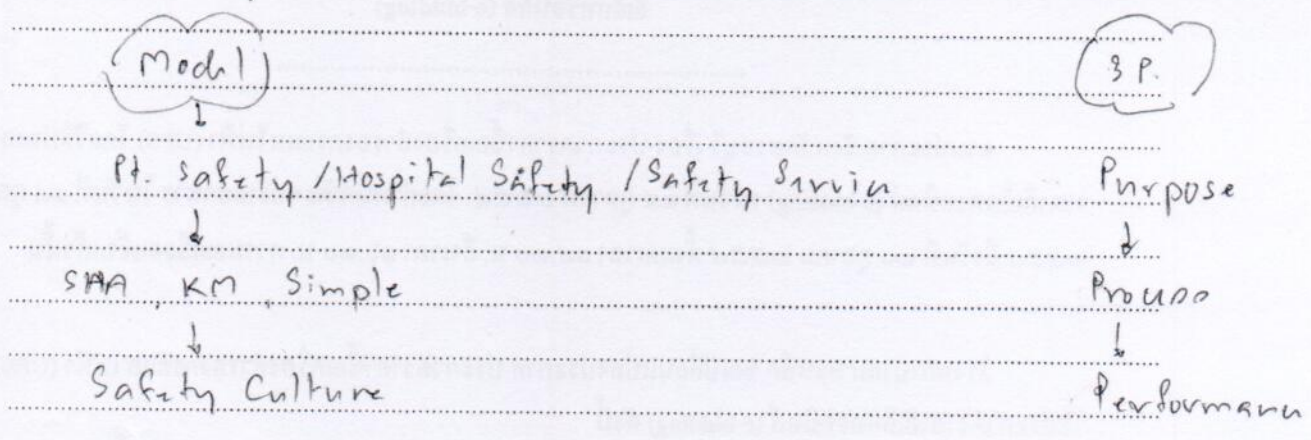 Model 3 P.
Pt. Safety / Hospital Safety / Safety Service Purpose
SHA, KM, Simple Process
Safety Culture Performance